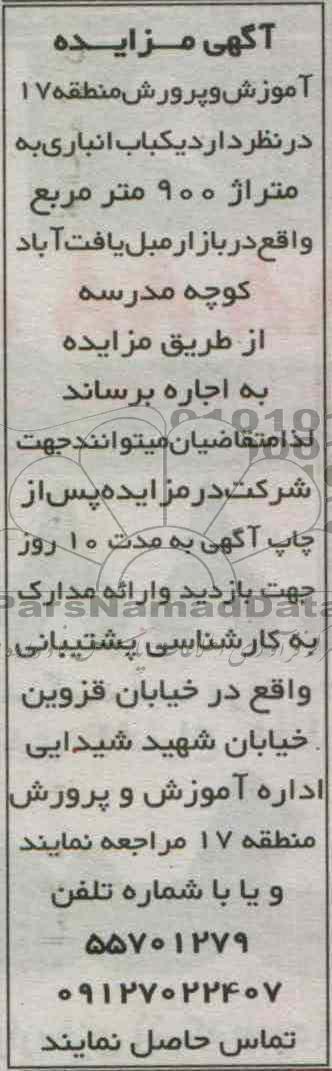 آگهی مزایده
آموزش و پرورش منطقه ۱۷
در نظر دارد یکباب انباری به
متراژ ۹۰۰ متر مربع
واقع در بازار مبل یافت آباد
کوچه مدرسه
از طریق مزایده
به اجاره برساند
لذا متقاضیان میتوانند جهت
شرکت در مزایده پس از
چاپ آگهی به مدت ۱۰ روز
جهت بازدید و ارائه مدارک
ParsNamadData
به کارشناسی پشتیبانی
واقع در خیابان قزوین
خیابان شهید شیدایی
اداره آموزش و پرورش
منطقه ۱۷ مراجعه نمایند
و یا با شماره تلفن
۵۵۷۰۱۲۷۹
۰۹۱۲۷۰۲۲۴۰۷
تماس حاصل نمایند